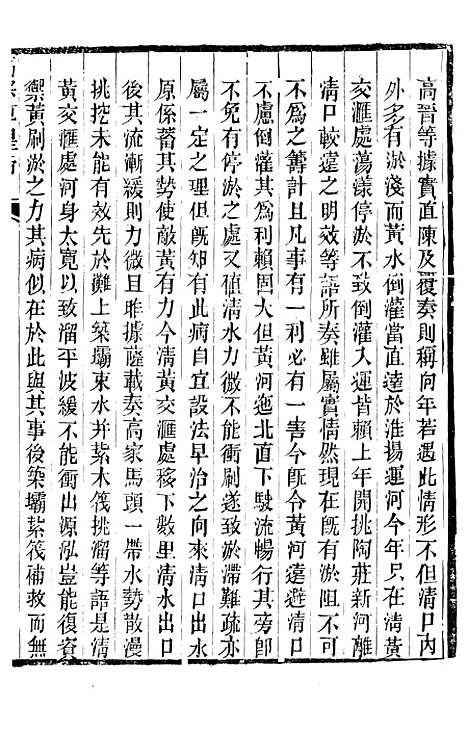 高晉等據實直陳及覆奏則稱向年若遇此情形不但清口內
外多有淤淺而黃水倒灌當直達於淮揚運河今年只在清黃
交滙處蕩漾停淤不致倒灌入運皆賴上年開挑陶莊新河離
清口較遠之明效等語所奏雖屬實情然現在旣有淤阻不可
不爲之籌計且凡事有一利必有一害今旣令黃河遠避淸口
不慮倒灌其爲利賴固大但黃河迤北直下駛流暢行其旁卽
不免有停淤之處又値清水力微不能衝刷遂致淤滯難疏亦
屬一定之理但旣知有此病自宜設法早治之向來清口出水
原係蓄其勢使敵黃有力今清黃交滙處移下數里清水出口
後其流漸緩則力微且昨據薩載奏高家馬頭一帶水勢散漫
挑挖未能有效先於灘上築壩束水并紮木筏挑溜等語是清
黃交滙處河身太寬以致溜平波緩不能衝出源泓豈能復資
禦黃刷淤之力其病似在於此與其事後築壩紮筏補救而無